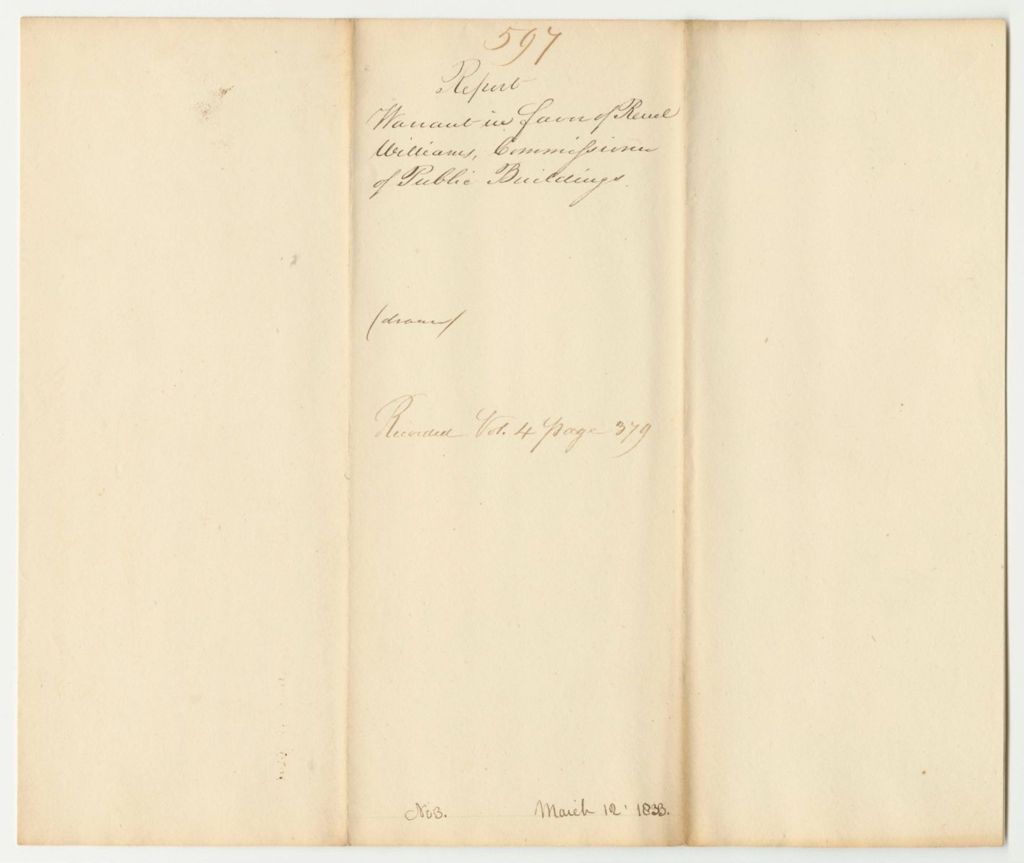 597
Report
Warrant in favor of Reuel
Williams, Commissioner
of Public Buildings.
(drawn)
Recorded Vol. 4 page 379
No 3. March 12' 1833.